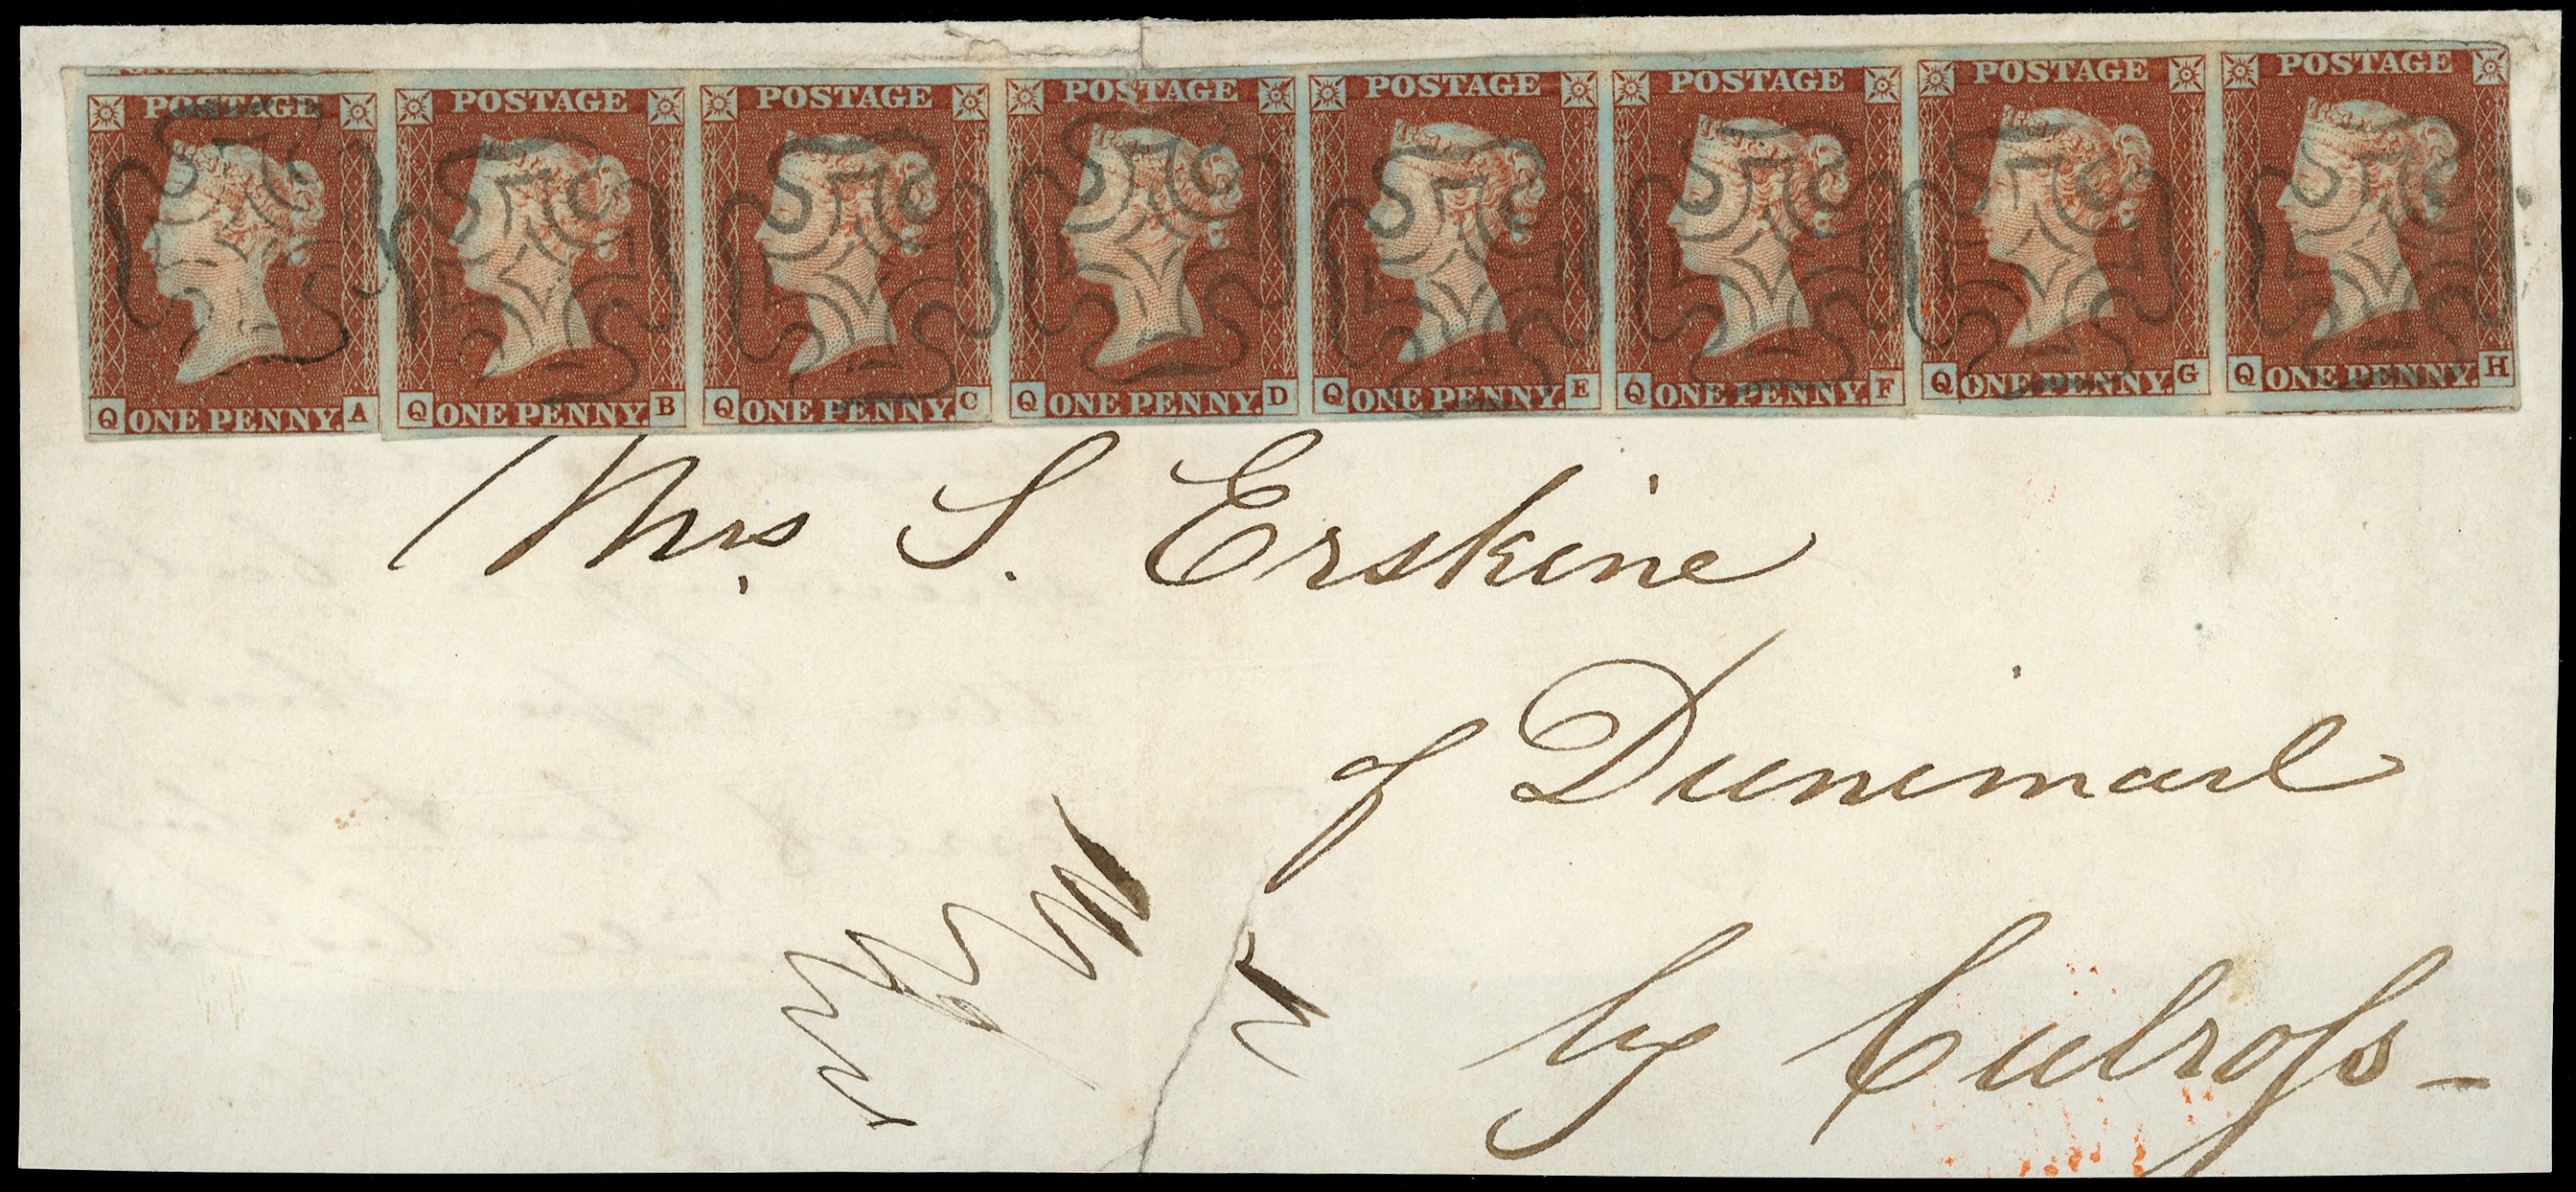 POSTAGE POSTAGE POSTAGE POSTAGE POSTAGE POSTAGE POSTAGE POSTAGE
Q ONE PENNY. A Q ONE PENNY. B Q ONE PENNY. C Q ONE PENNY. D Q ONE PENNY. E Q ONE PENNY. F Q ONE PENNY. G Q ONE PENNY. H
Mrs. S. Erskine
of Dunimarl
by Culroſs